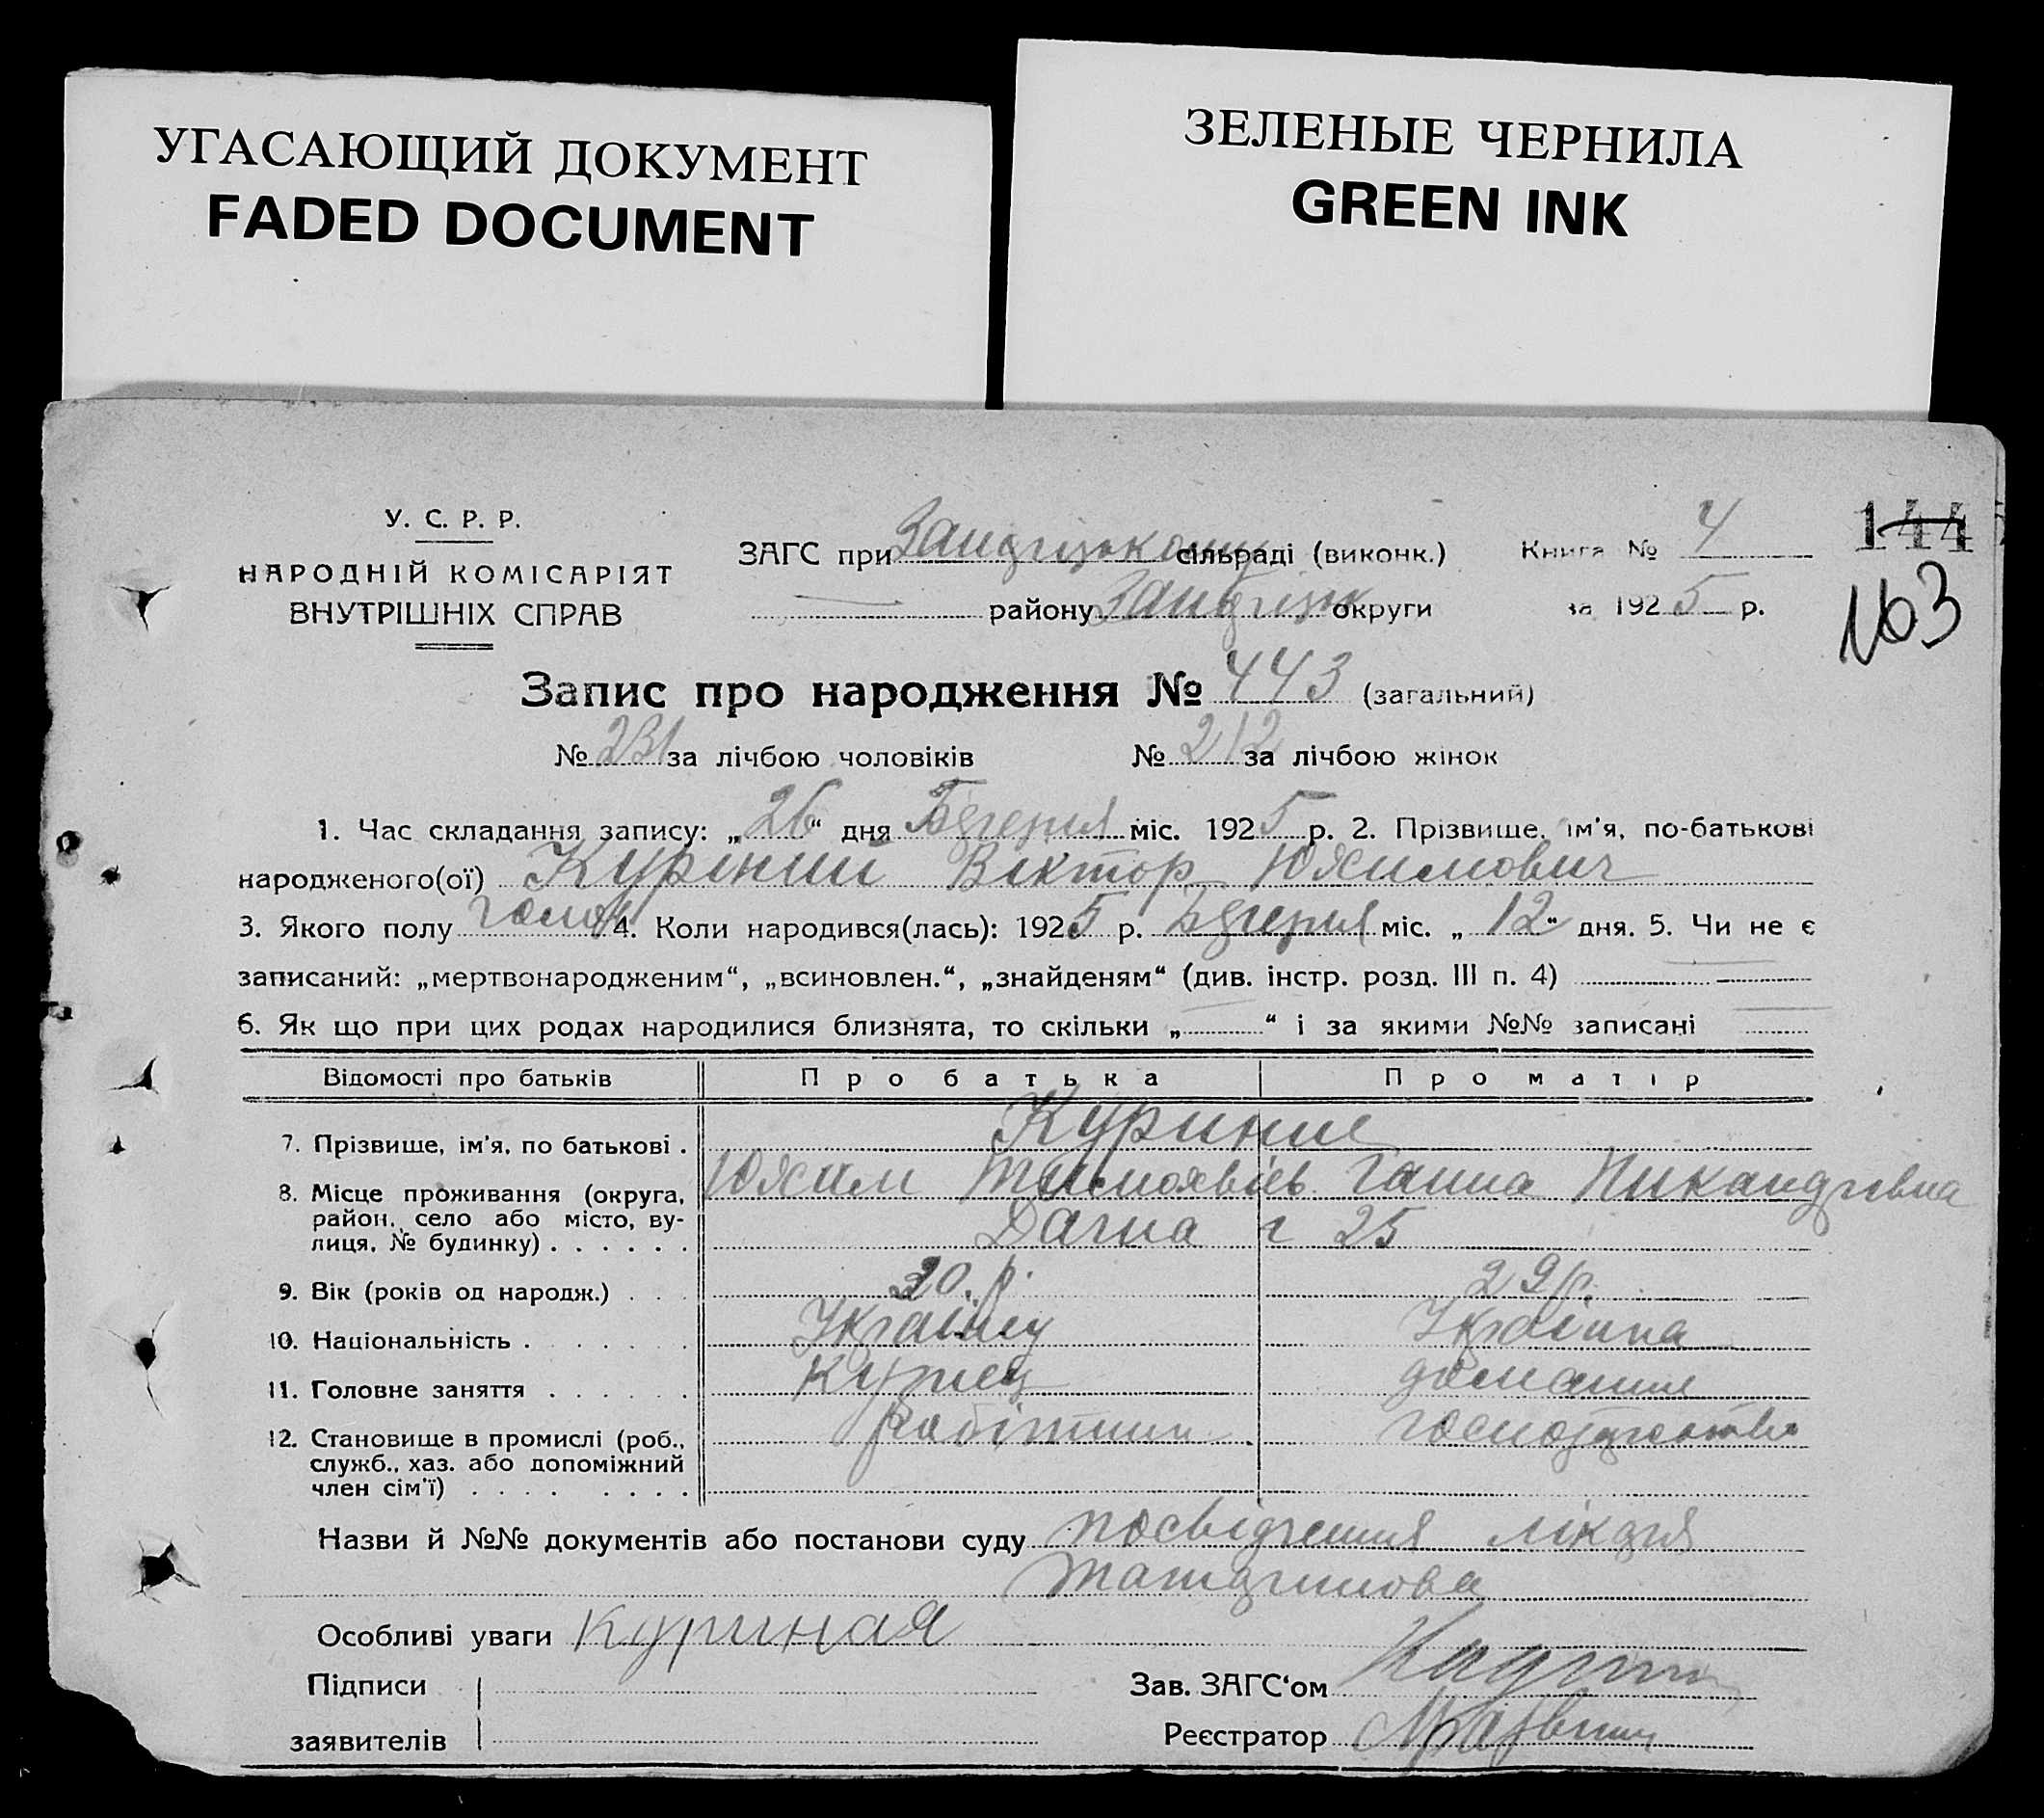 УГАСАЮЩИЙ ДОКУМЕНТ
FADED DOCUMENT
ЗЕЛЕНЫЕ ЧЕРНИЛА
GREEN INK
У. С. Р. Р.
НАРОДНІЙ КОМІСАРІЯТ
ВНУТРІШНІХ СПРАВ
ЗАГС при сільраді (виконк.) Книга № 4
144
району округи за 1925 р.
163
Запис про народження № 443 (загальний)
№ 231 за лічбою чоловіків № 212 за лічбою жінок
1. Час складання запису: „26“ дня міс. 1925 р. 2. Прізвище, ім'я, по-батькові
народженого(ої) Куріний Віктор Юхимович
3. Якого полу чолов 4. Коли народився(лась): 1925 р. міс. „12“ дня. 5. Чи не є
записаний: „мертвонародженим“, „всиновлен.“, „знайденям“ (див. інстр. розд. III п. 4)
6. Як що при цих родах народилися близнята, то скільки „ “ і за якими №№ записані
Відомості про батьків Про батька Про матір
7. Прізвище, ім'я, по батькові . Куриние
8. Місце проживання (округа, Юхим Тимофвіев Ганна Никандрівна
район, село або місто, вулиця, № будинку) . . . . . . Дачна 25
9. Вік (років од народж.) . . . 30 р. 29 р.
10. Національність . . . . . . . Українец Українка
11. Головне заняття . . . . . . домашнє
12. Становище в промислі (роб., робітник господарство
служб., хаз. або допоміжний
член сім'ї) . . . . . . . .
Назви й №№ документів або постанови суду посвідчення лікаря
Особливі уваги Куриная
Підписи Зав. ЗАГС'ом
заявителів Реєстратор